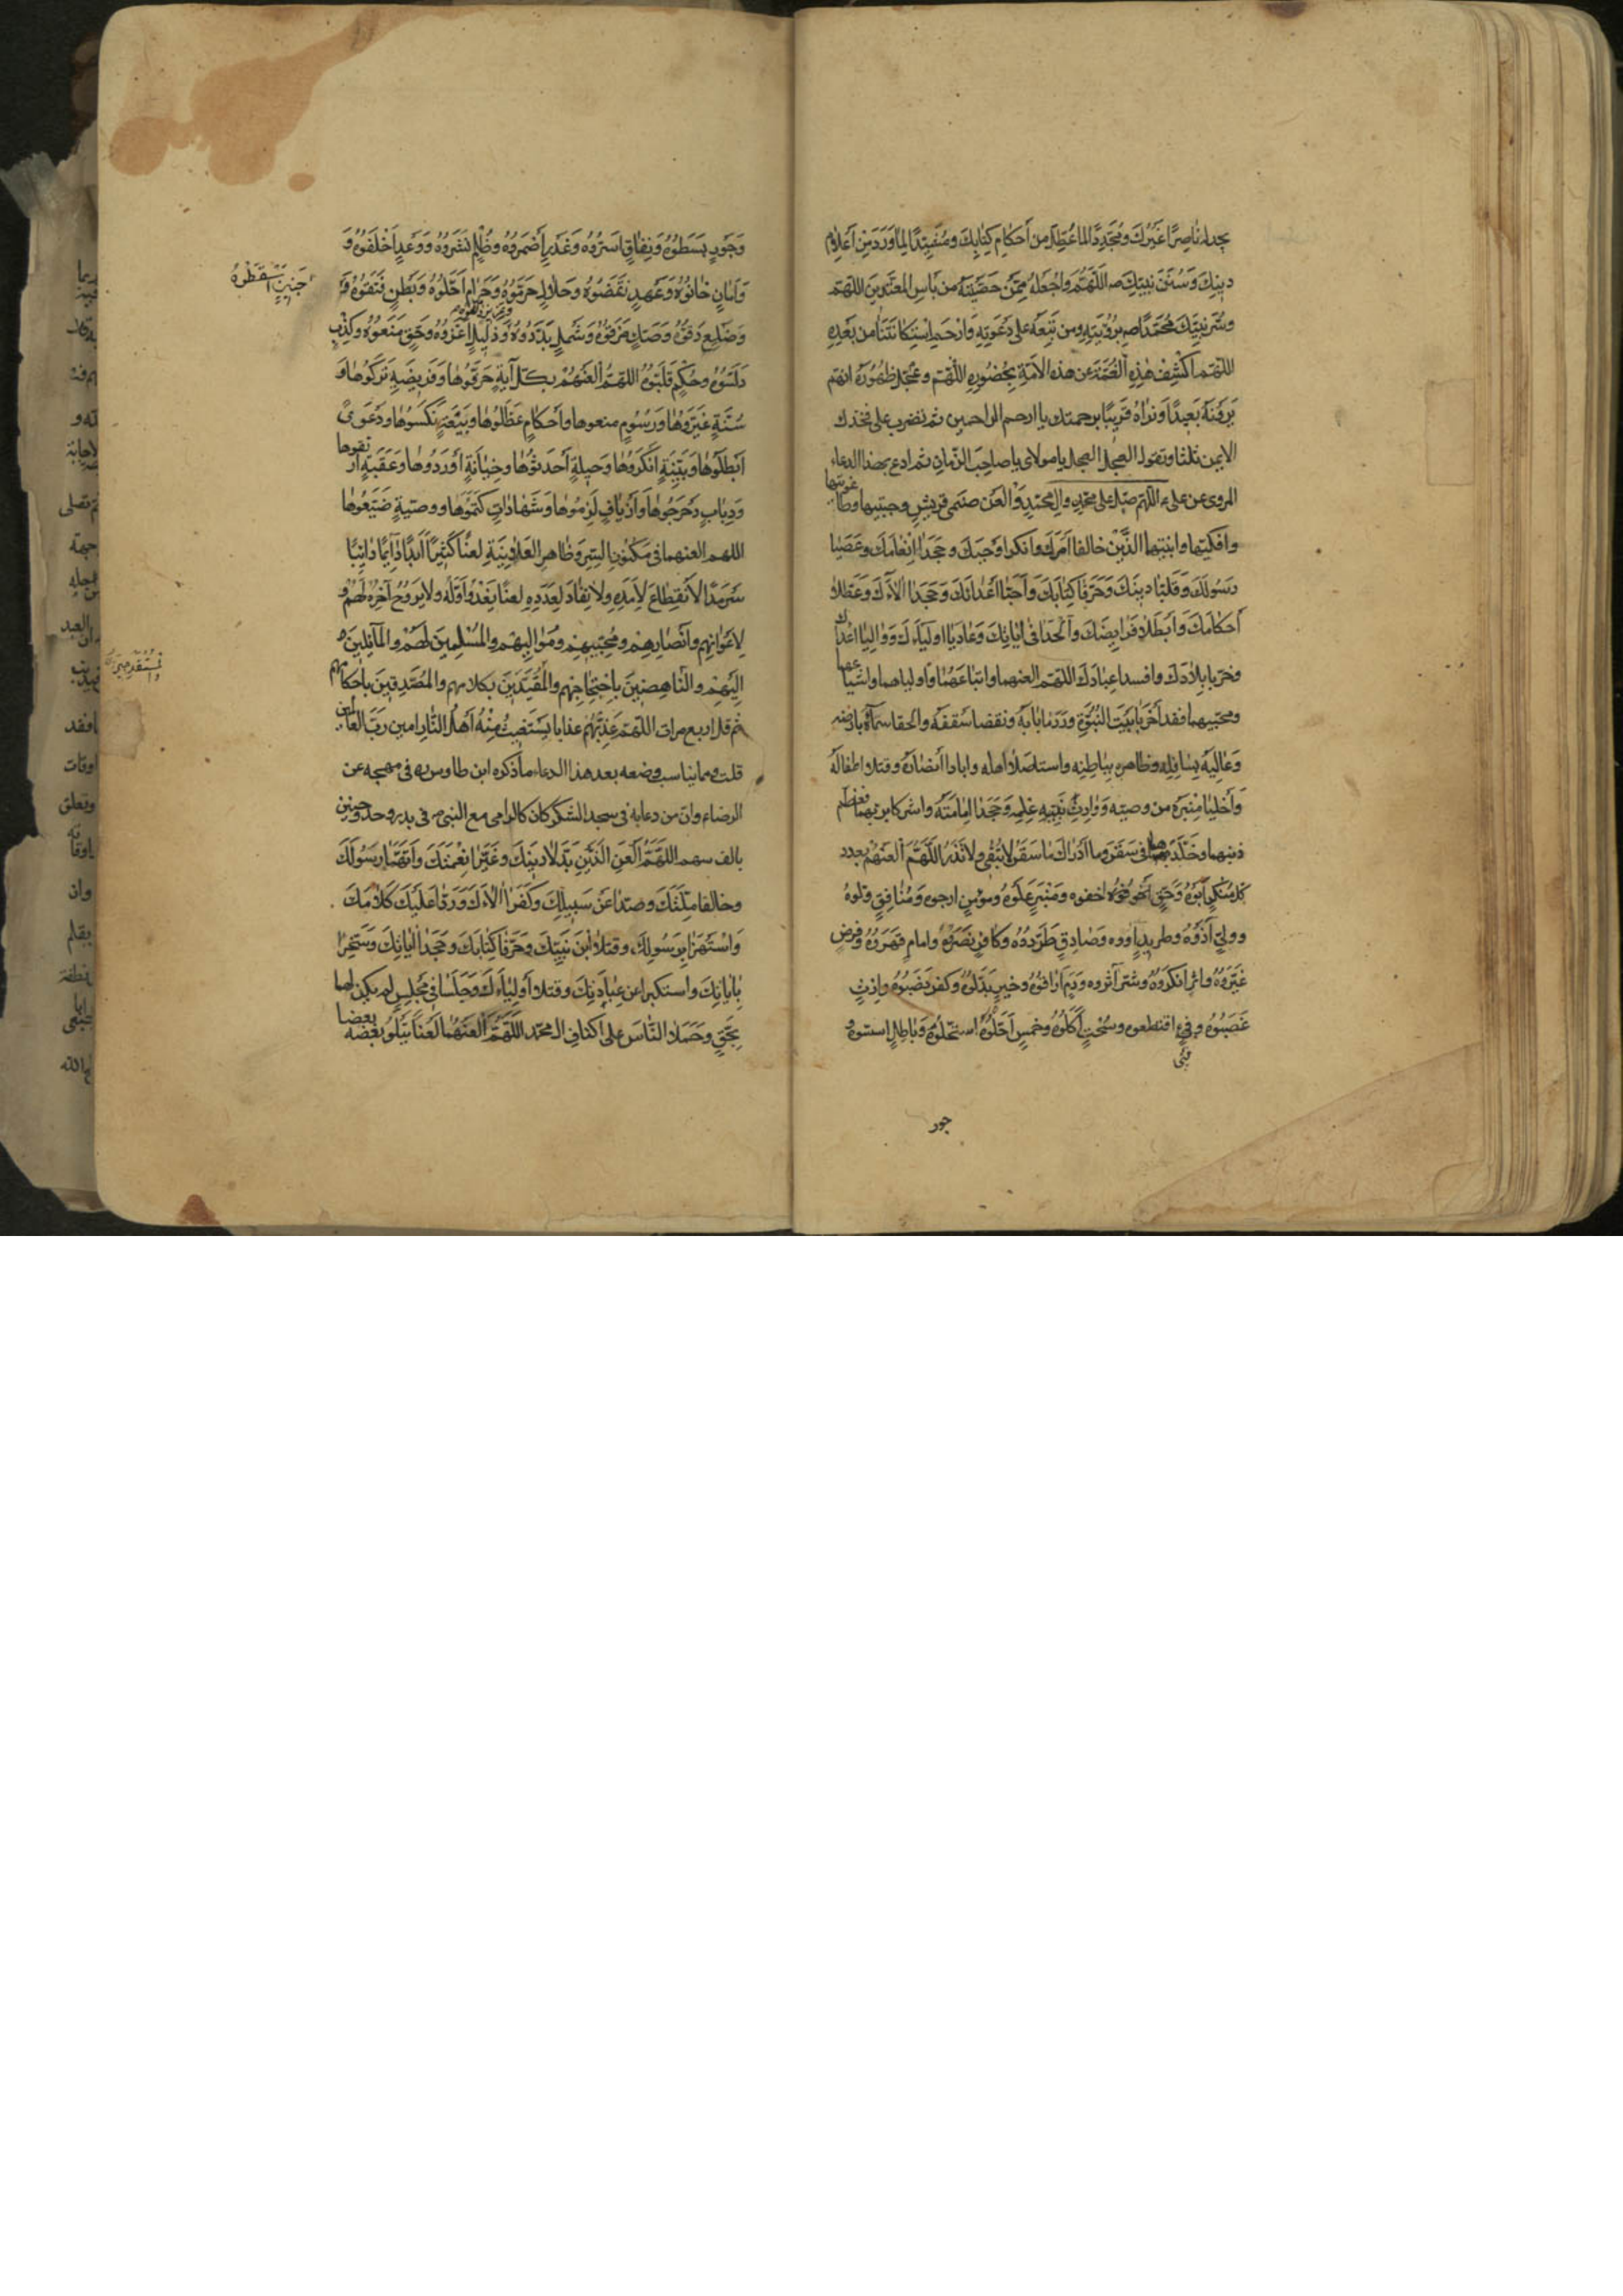 يجد له ناصرا غيرك ومجددا لما عطل من أحكام كتابك ومشيدا لما ورد من أعلام
دينك وسنن نبيك صد اللهم واجعله ممن حصنته من بأس المعتدين اللهم
وسر نبيك محمدا صد برؤيته ومن تبعه على دعوته وارحم استكانتنا من بعده
اللهم اكشف هذه الغمة عن هذه الامة بحضوره اللهم وعجل ظهوره انهم
يرونه بعيدا ونراه قريبا برحمتك يا ارحم الراحمين ثم تضرب على فخذك
الايمن ثلثا وتقول العجل العجل يا مولاى يا صاحب الزمان ثم ادع بهذا الدعاء
المروى عن علىء اللهم صل على محمد وال محمد والعن صنمى قريش وجبتيها وطاغوتيها
وافكيها وابنتيها الذين خالفا امرك وانكرا وحيك وجحدا انعامك وعصيا
رسولك وقلبا دينك وحرفا كتابك وأحبا أعدائك وجحدا آلاءك وعطلا
أحكامك وأبطلا فرايضك وألحدا فى اياتك وعاديا اولياءك وواليا اعداءك
وخربا بلادك وافسدا عبادك اللهم العنهما واتباعهما وأولياهما واشياعهما
ومحبيهما فقد أخربا بيت النبوة وردما بابه ونقضا سقفه والحقا سماؤه بارضه
وعاليه بسافله وظاهره بباطنه واستاصلا اهله وابادا أنصاره وقتلا اطفاله
وأخليا منبره من وصيه ووارث علمه وجحدا امامته واشركا بربهما فعظم
ذنبهما وخلدهما فى سقر وما ادراك ما سقر لا تبقى ولا تذر اللهم العنهم بعدد
كل منكر أتوه وحق اخفوه ومنبر علوه ومؤمن ارجوه ومنافق ولوه
وولى آذوه وطريد اووه وصادق طردوه وكافر نصروه وامام قهروه وفرض
غيروه واثر انكروه وشر آثروه ودم اراقوه وخير بدلوه وكفر نصبوه وارث
غصبوه وفىء اقتطعوه وسحت أكلوه وخمس استحلوه وباطل اسسوه و
فىء
جور
وجور بسطوه ونفاق اسروه وغدر أضمروه وظلم نشروه ووعد اخلفوه و
وامان خانوه وعهد نقضوه وحلال حرموه وحرام احلوه وبطن فتقوه و
جنين اسقطوه
وضلع دقوه وصك مزقوه وشمل بددوه وذليل اعزوه وحق منعوه وكذب
دلسوه وحكم قلبوه اللهم العنهم بكل آية حرفوها وفريضة تركوها و
سنة غيروها ورسوم منعوها وأحكام عطلوها وبيعة نكسوها ودعوى
أبطلوها وبينة انكروها وحيلة أحدثوها وخيانة أوردوها وعقبة ارتقوها
ودباب دحرجوها وأزياف لزموها وشهادات كتموها ووصية ضيعوها
اللهم العنهما فى مكنون السر وظاهر العلانية لعنا كثيرا أبدا دائما دائبا
سرمدا لا انقطاع لامده ولا نفاد لعدده لعنا يغدو أوله ولا يروح آخره لهم و
لاعوانهم وأنصارهم ومحبيهم ومواليهم والمسلمين لهم والمآئلين
اليهم والناهضين باحتجاجهم والمقتدين بكلامهم والمصدقين باحكامهم
ثم قل اربع مرات اللهم عذبهم عذابا يستغيث منه أهل النار امين رب العالمين
قلت ومما يناسب وضعه بعد هذا الدعاء ما ذكره ابن طاوس ره فى مهجه عن
الرضاء وان من دعا به فى سجد الشكر كان كالرامى مع النبى ص فى بدر واحد وحنين
بالف سهم اللهم العن الذين بدلا دينك وغيرا نعمتك وأتهما رسولك
وخالفا ملتك وصدا عن سبيلك وكفرا آلاءك وردا عليك كلامك
واستهزءا برسولك وقتلا ابن نبيك وحرفا كتابك وجحدا اياتك وسخرا
باياتك واستكبرا عن عبادتك وقتلا أولياءك وجلسا فى مجلس لم يكن لهما
بحق وحملا الناس على اكتاف ال محمد اللهم العنهما لعنا يتلو بعضه بعضا